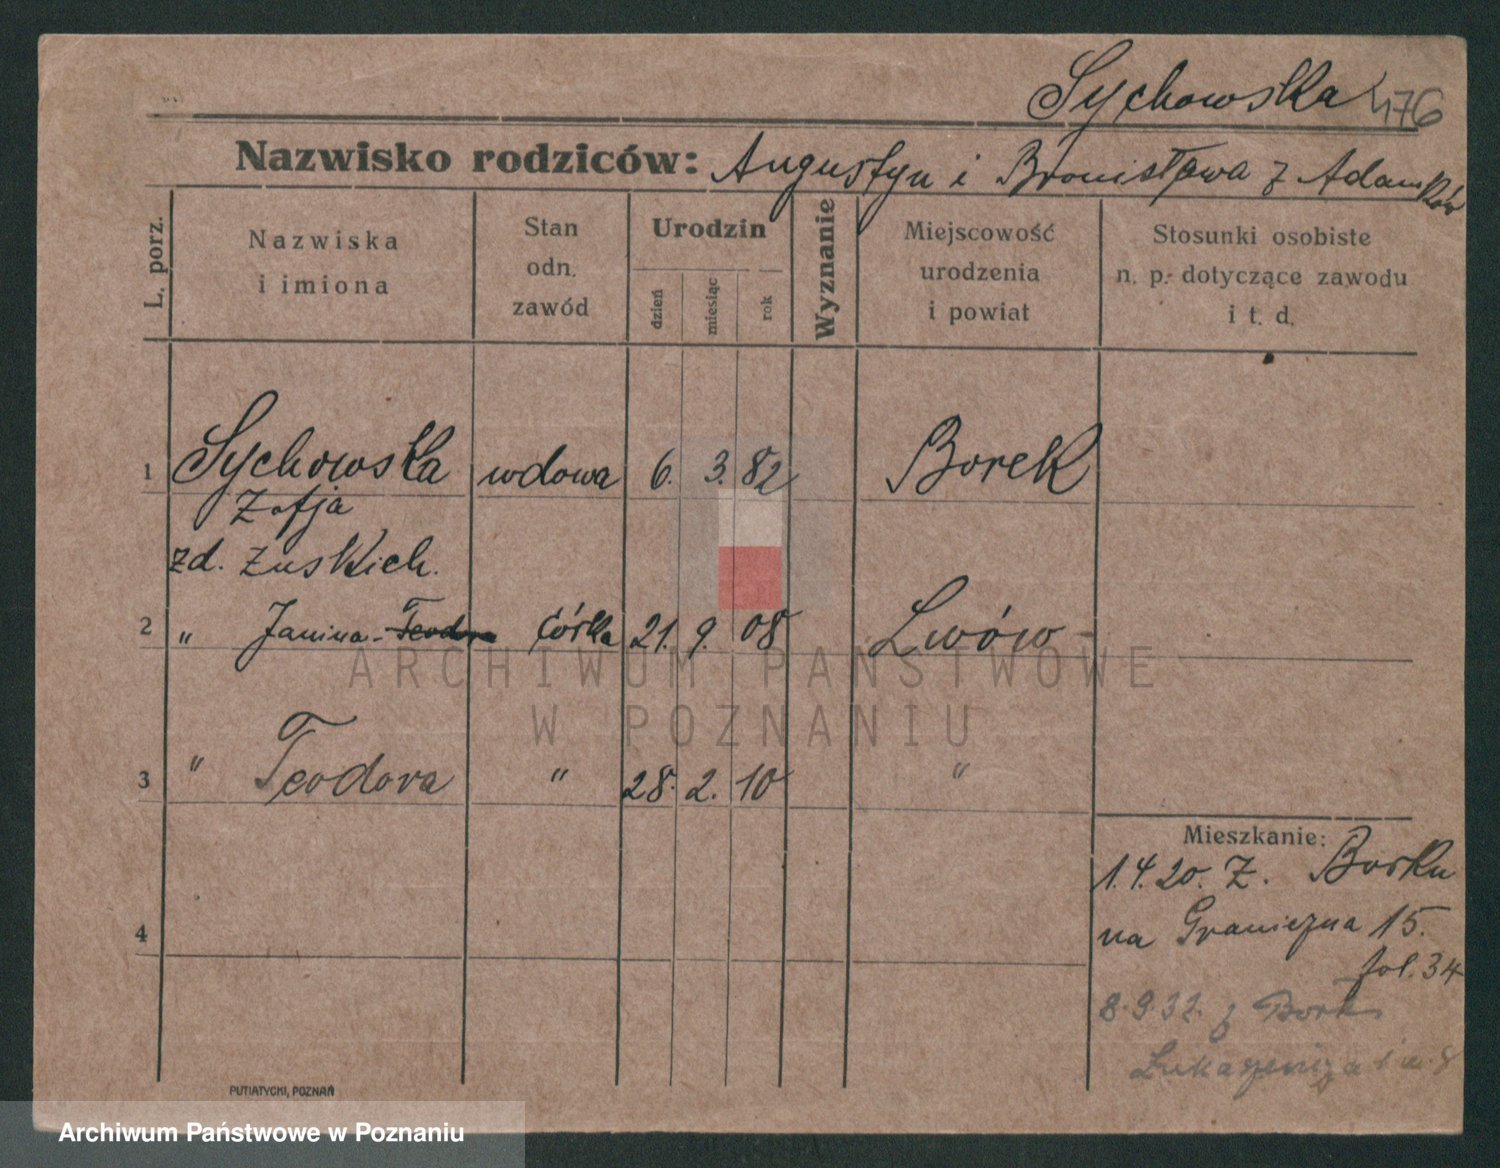 Sychowska 476
Nazwisko rodziców: Augustyn i Bronisława z Adamków
L. porz.
Nazwiska
i imiona
Stan
odn.
zawód
Urodzin
dzień
miesiąc
rok
Wyznanie
Miejscowość
urodzenia
i powiat
Stosunki osobiste
n. p. dotyczące zawodu
i t. d.
1 Sychowska wdowa 6. 3. 82 Borek
Zofja
zd. Zuskich.
2 " Janina-Teodora córka 21. 9. 08 Lwów
ARCHIWUM PAŃSTWOWE
W POZNANIU
3 " Teodora " 28. 2. 10 "
Mieszkanie:
1.4.20. Z. Borku
na Graniczna 15.
fol. 34
4
8.9.32. z Bork
PUTIATYCKI, POZNAŃ
Archiwum Państwowe w Poznaniu